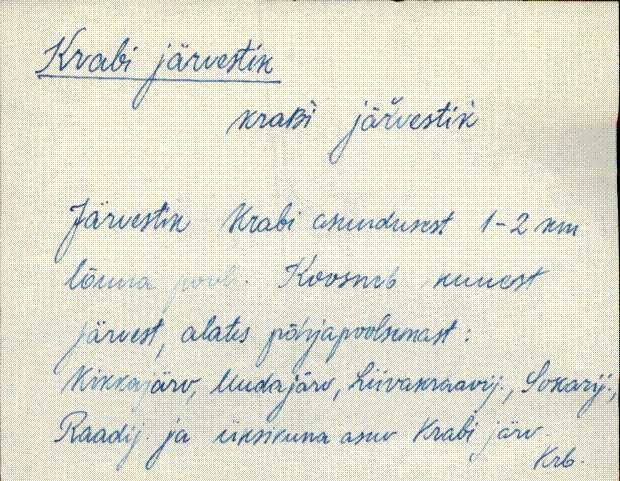 Krabi järvestik
kraʙ̀i jäŕvestik
Järvestik Krabi asundusest 1-2 km
lõuna pool. Koosneb kuuest
järvest, alates põhjapoolsemast:
Kikkajärv, Uudajärv, Liivakraavij., Sokarij.,
Raadij. ja üksikuna asuv Krabi järv
Krb.